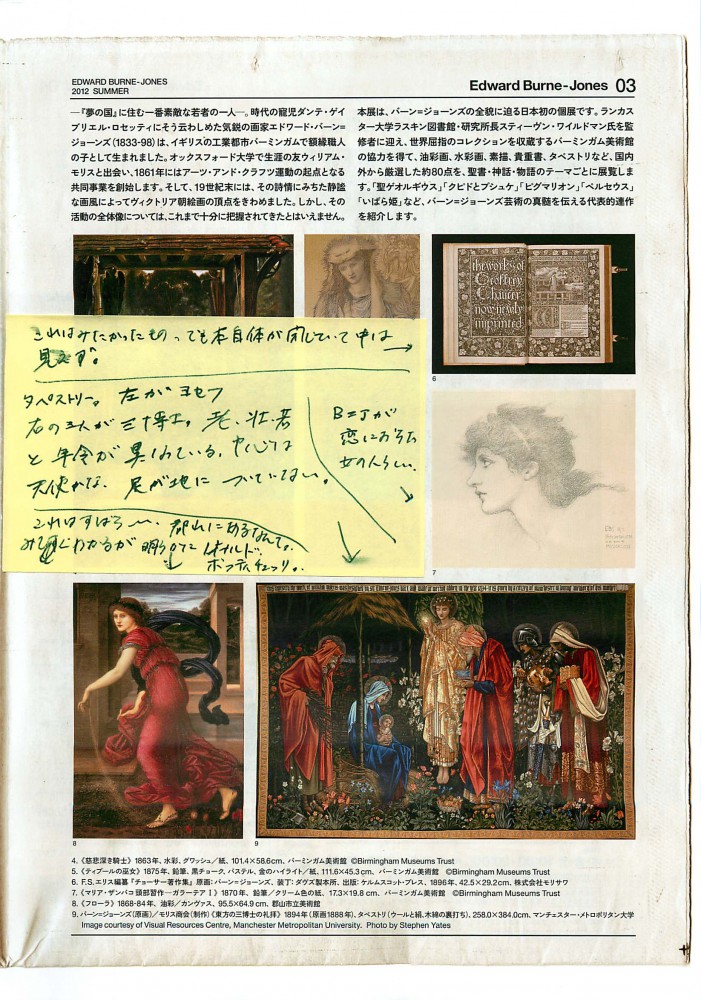 EDWARD BURNE-JONES
2012 SUMMER
Edward Burne-Jones 03
―『夢の国』に住む一番素敵な若者の一人―。時代の寵児ダンテ・ゲイ
ブリエル・ロセッティにそう云わしめた気鋭の画家エドワード・バーン=
ジョーンズ(1833-98)は、イギリスの工業都市バーミンガムで額縁職人
の子として生まれました。オックスフォード大学で生涯の友ウィリアム・
モリスと出会い、1861年にはアーツ・アンド・クラフツ運動の起点となる
共同事業を創始します。そして、19世紀末には、その詩情にみちた静謐
な画風によってヴィクトリア朝絵画の頂点をきわめました。しかし、その
活動の全体像については、これまで十分に把握されてきたとはいえません。
本展は、バーン=ジョーンズの全貌に迫る日本初の個展です。ランカス
ター大学ラスキン図書館・研究所長スティーヴン・ワイルドマン氏を監
修者に迎え、世界屈指のコレクションを収蔵するバーミンガム美術館
の協力を得て、油彩画、水彩画、素描、貴重書、タペストリなど、国内
外から厳選した約80点を、聖書・神話・物語のテーマごとに展覧しま
す。「聖ゲオルギウス」「クピドとプシュケ」「ピグマリオン」「ペルセウス」
「いばら姫」など、バーン=ジョーンズ芸術の真髄を伝える代表的連作
を紹介します。
the works of
Geoffrey
Chaucer
now newly
imprinted
6
これはみたかったもの。でも本自体が閉じていて中は
見えず。
タペストリー。左がヨセフ
右の3人が三博士。老、壮、若
と年令が異なっている。中心は
天使かな、足が地についていない。
B=Jが
恋におちた
女の人らしい。
これはすばらしい。郡山にあるなんて。
ボッティチェッリ。
7
8
9
4.《慈悲深き騎士》1863年、水彩、グワッシュ/紙、101.4×58.6cm、バーミンガム美術館 ©Birmingham Museums Trust
5.《ティブールの巫女》1875年、鉛筆、黒チョーク、パステル、金のハイライト/紙、111.6×45.3cm、バーミンガム美術館 ©Birmingham Museums Trust
6. F.S.エリス編纂『チョーサー著作集』原画:バーン=ジョーンズ、装丁:ダヴズ製本所、出版:ケルムスコット・プレス、1896年、42.5×29.2cm、株式会社モリサワ
7.《マリア・ザンバコ 頭部習作―ガラーテアⅠ》1870年、鉛筆/クリーム色の紙、17.3×19.8 cm、バーミンガム美術館 ©Birmingham Museums Trust
8.《フローラ》1868-84年、油彩/カンヴァス、95.5×64.9 cm、郡山市立美術館
9. バーン=ジョーンズ(原画)/モリス商会(制作)《東方の三博士の礼拝》1894年(原画1888年)、タペストリ(ウールと絹、木綿の裏打ち)、258.0×384.0cm、マンチェスター・メトロポリタン大学
Image courtesy of Visual Resources Centre, Manchester Metropolitan University. Photo by Stephen Yates